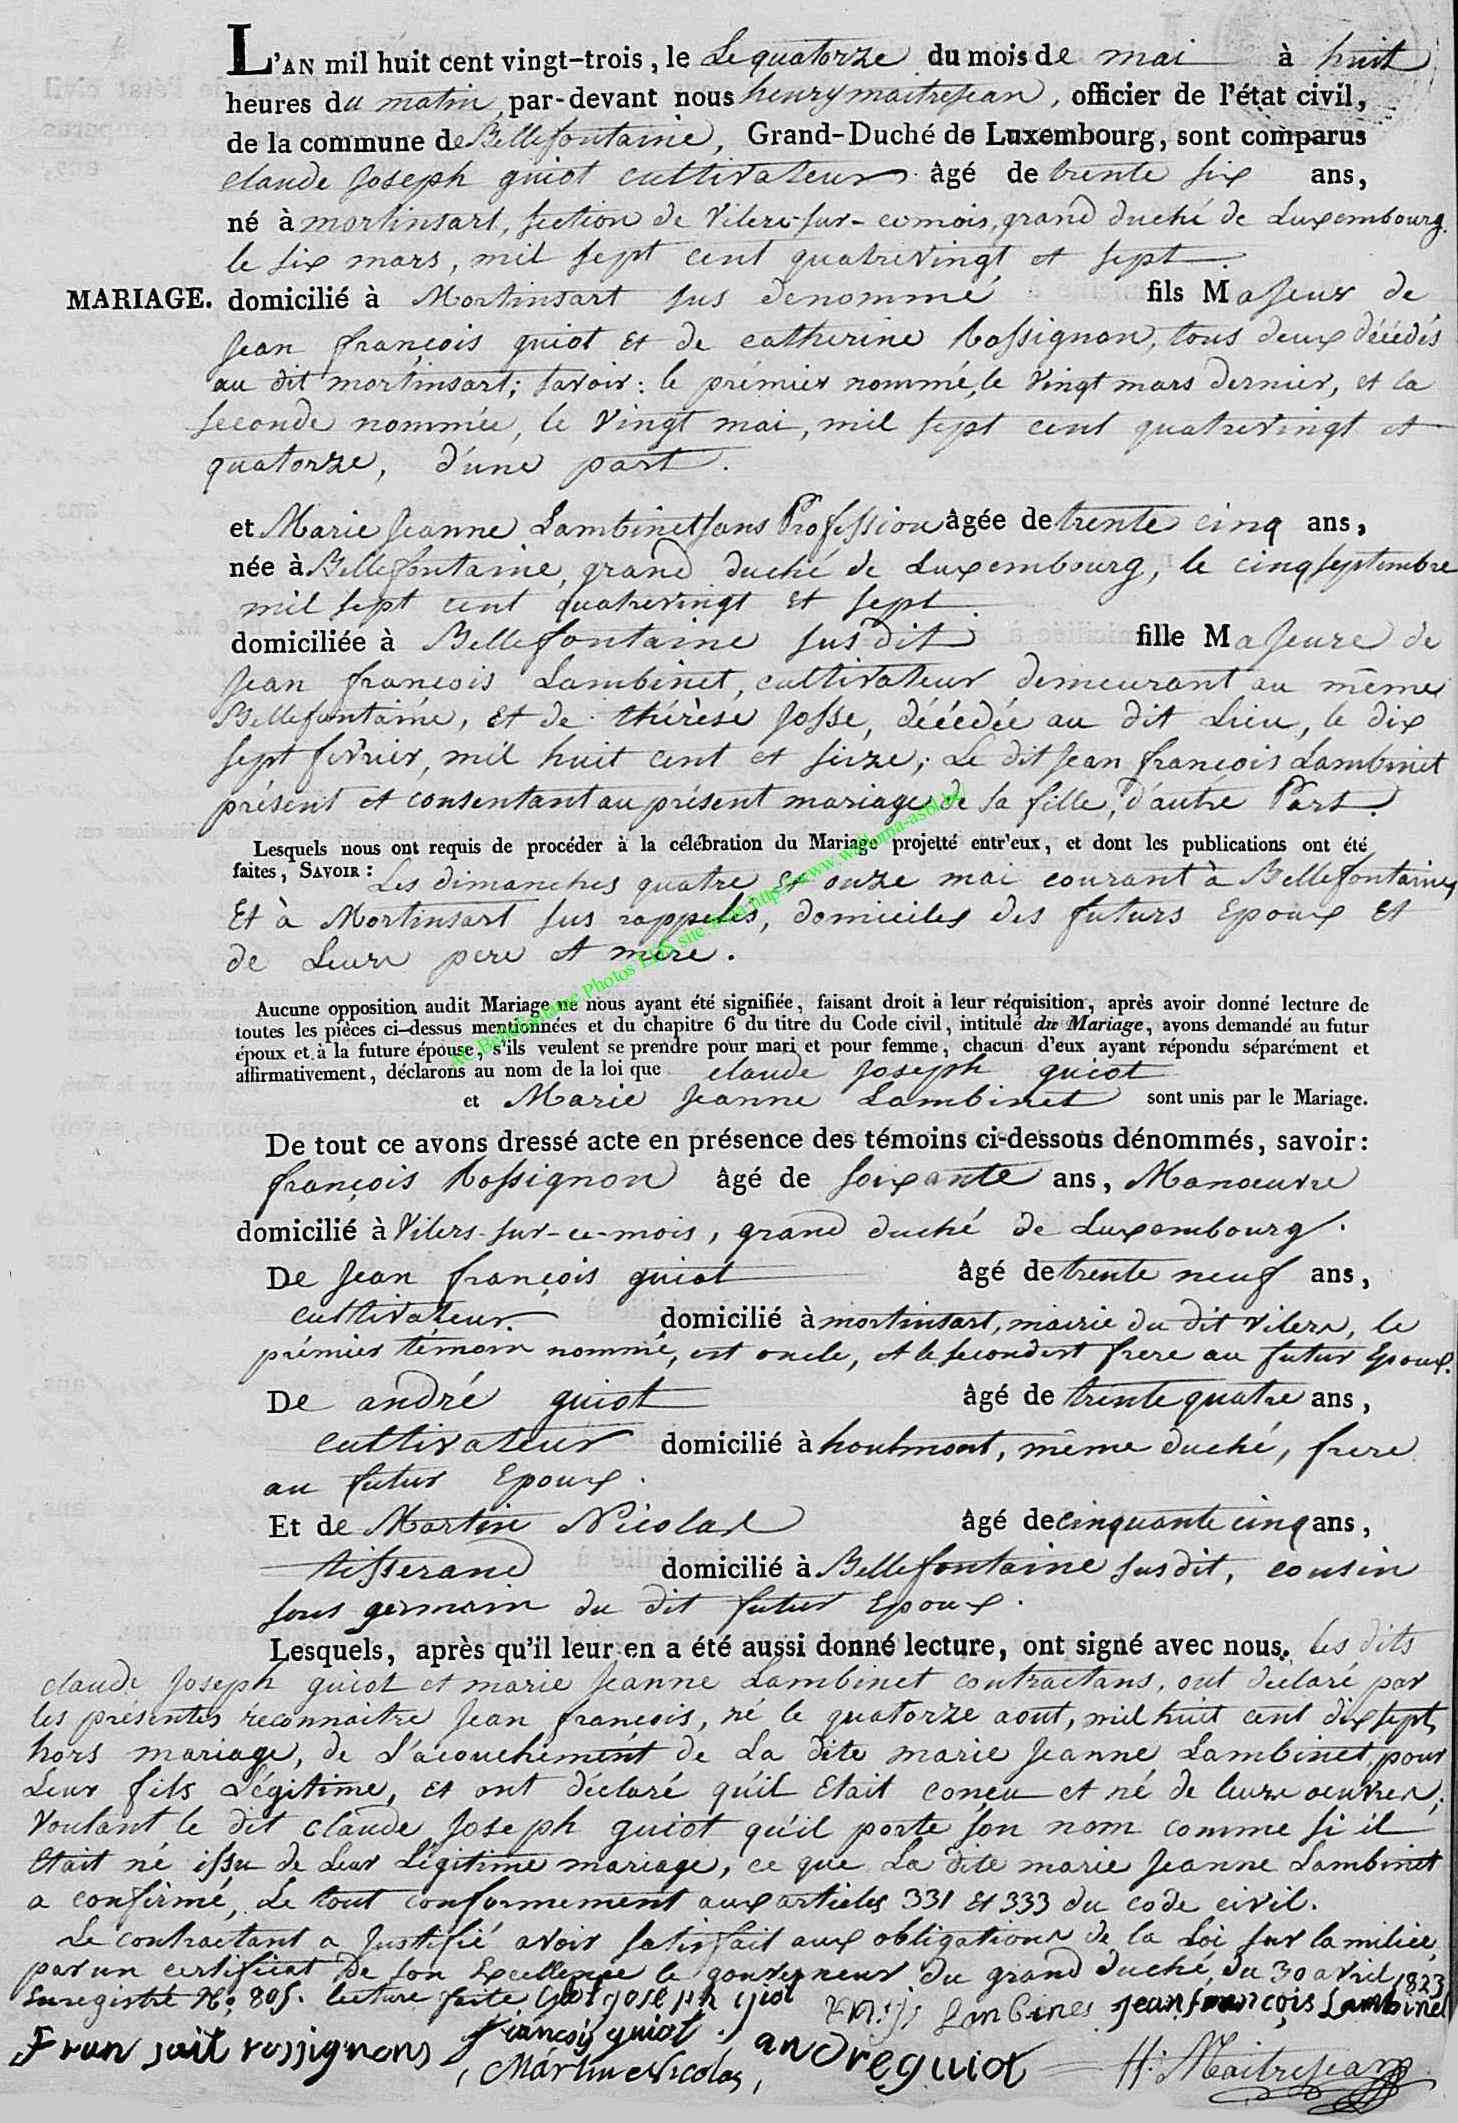 L'AN mil huit cent vingt-trois, le Le quatorze du mois de mai à huit
heures du matin, par-devant nous henry maitrejean, officier de l'état civil,
de la commune de Bellefontaine, Grand-Duché de Luxembourg, sont comparus
claude Joseph guiot cultivateur âgé de trente six ans,
né à mortinsart, section de Vilers-sur-cemois, grand duché de Luxembourg.
le six mars, mil sept cent quatrevingt et sept.
MARIAGE. domicilié à Mortinsart sus denommé fils Majeur de
Jean françois guiot et de catherine Rossignon, tous deux décédés
au dit mortinsart; savoir: le prémier nommé, le vingt mars dernier, et la
seconde nommée, le vingt mai, mil sept cent quatrevingt et
quatorze, d'une part.
et Marie Jeanne Lambinet sans Profession âgée de trente cinq ans,
née à Bellefontaine, grand duché de Luxembourg, le cinq septembre
mil sept cent quatrevingt et sept.
domiciliée à Bellefontaine susdit fille Majeure de
Jean françois Lambinet, cultivateur demeurant au même
Bellefontaine, et de thérèse Josse, décédée au dit Lieu, le dix
sept fevrier, mil huit cent et seize; Le dit Jean françois Lambinet
présent et consentant au présent mariage de sa fille, d'autre Part.
Lesquels nous ont requis de procéder à la célébration du Mariage projetté entr'eux, et dont les publications ont été
faites, SAVOIR: Les dimanches quatre et onze mai courant à Bellefontaine,
Et à Mortinsart sus rappelés, domiciles des futurs Epoux et
de Leurs pere et mère.
Aucune opposition audit Mariage ne nous ayant été signifiée, faisant droit à leur réquisition, après avoir donné lecture de
toutes les pièces ci-dessus mentionnées et du chapitre 6 du titre du Code civil, intitulé du Mariage, avons demandé au futur
époux et à la future épouse, s'ils veulent se prendre pour mari et pour femme, chacun d'eux ayant répondu séparément et
affirmativement, déclarons au nom de la loi que claude Joseph guiot
et Marie Jeanne Lambinet sont unis par le Mariage.
De tout ce avons dressé acte en présence des témoins ci-dessous dénommés, savoir:
françois Rossignon âgé de soixante ans, Manoeuvre
domicilié à Vilers-sur-ce-mois, grand duché de Luxembourg.
De Jean françois guiot âgé de trente neuf ans,
cultivateur domicilié à mortinsart, mairie du dit vilers, le
prémier témoin nommé, est oncle, et le second est frere au futur Epoux.
De andré guiot âgé de trente quatre ans,
cultivateur domicilié à houlmont, même duché, frere
au futur Epoux.
Et de Martin Nicolas âgé de cinquante cinq ans,
tisserand domicilié à Bellefontaine susdit, cousin
sous germain du dit futur Epoux.
Lesquels, après qu'il leur en a été aussi donné lecture, ont signé avec nous. Les dits
claude Joseph guiot et marie Jeanne Lambinet contractans, ont déclaré par
les présentes réconnaitre Jean françois, né le quatorze aout, mil huit cent dix sept,
hors mariage, de l'acouchement de La dite marie Jeanne Lambinet, pour
Leur fils Légitime, et ont déclaré qu'il Etait conçu et né de leurs oeuvres,
voulant le dit claude Joseph guiot qu'il porte son nom comme si il
Etait né issu de Leur Légitime mariage, ce que La dite marie Jeanne Lambinet
a confirmé, Le tout conformement aux articles 331 et 333 du code civil.
Le contractant a Justifié avoir satisfait aux obligations de la Loi sur la milice,
par un certificat de son Excellence le gouverneur du grand duché, du 30 avril 1823
Enregistré No 805. lecture faite. joseph giot Lambines jean françois Lambinet
rossignons françois guiot. andre guiot H: Maitrejean
Martin Nicolas,
AC Bellefontaine Photos site http://www.walloma-asbl.be